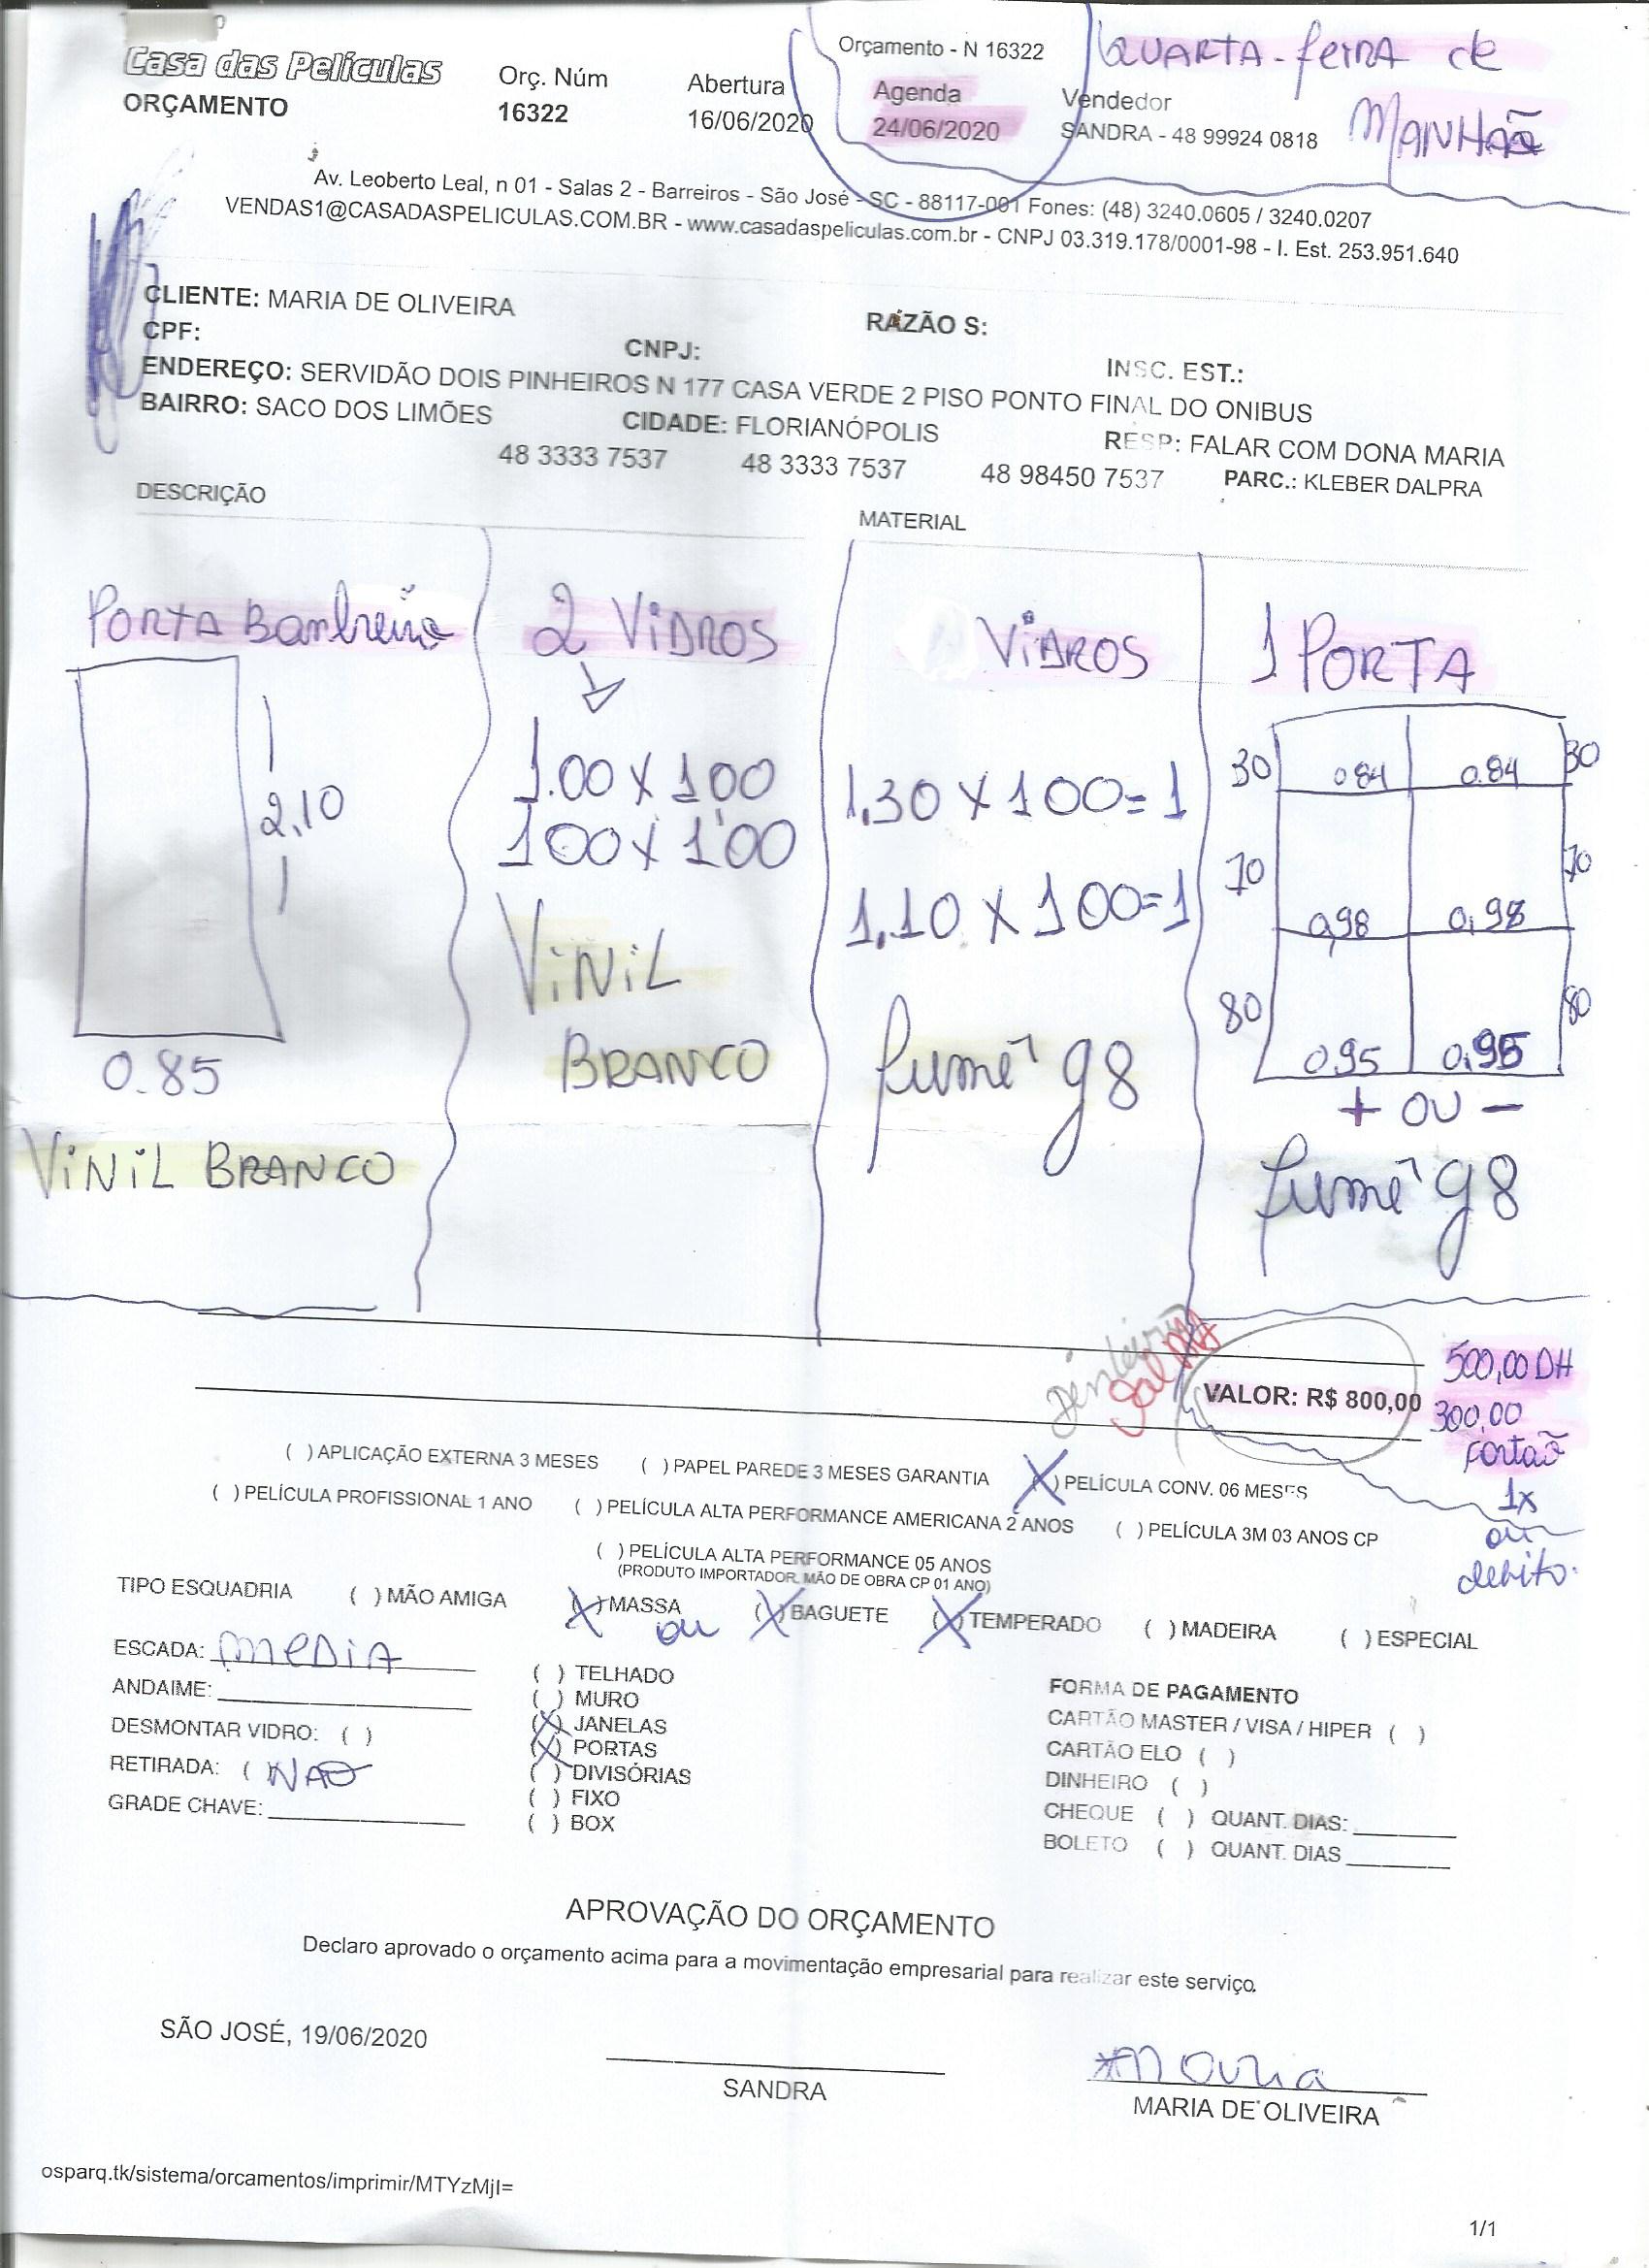 Orçamento - N 16322
QUARTA-feira de
MANHÃ
Casa das Películas
ORÇAMENTO
Orç. Núm
16322
Abertura
16/06/2020
Agenda
24/06/2020
Vendedor
SANDRA - 48 99924 0818
Av. Leoberto Leal, n 01 - Salas 2 - Barreiros - São José - SC - 88117-001 Fones: (48) 3240.0605 / 3240.0207
VENDAS1@CASADASPELICULAS.COM.BR - www.casadaspeliculas.com.br - CNPJ 03.319.178/0001-98 - I. Est. 253.951.640
CLIENTE: MARIA DE OLIVEIRA
RAZÃO S:
CPF:
CNPJ:
INSC. EST.:
ENDEREÇO: SERVIDÃO DOIS PINHEIROS N 177 CASA VERDE 2 PISO PONTO FINAL DO ONIBUS
BAIRRO: SACO DOS LIMÕES
CIDADE: FLORIANÓPOLIS
RESP: FALAR COM DONA MARIA
48 3333 7537 48 3333 7537 48 98450 7537 PARC.: KLEBER DALPRA
DESCRIÇÃO
MATERIAL
PORTA Banheiro
2,10
0.85
VINIL BRANCO
2 VIDROS
1.00 X 1,00
1 00 X 1,00
VINIL
BRANCO
VIDROS
1,30 X 1 00 = 1
1,10 X 1 00 = 1
fumê g8
1 PORTA
30 0.84 0.84 30
70 0,98 0,98 70
80 0,95 0,95 80
+ OU -
fumê g8
VALOR: R$ 800,00
500,00 DH
300,00
cartão
1x
ou
debito.
( ) APLICAÇÃO EXTERNA 3 MESES ( ) PAPEL PAREDE 3 MESES GARANTIA (X) PELÍCULA CONV. 06 MESES
( ) PELÍCULA PROFISSIONAL 1 ANO ( ) PELÍCULA ALTA PERFORMANCE AMERICANA 2 ANOS ( ) PELÍCULA 3M 03 ANOS CP
( ) PELÍCULA ALTA PERFORMANCE 05 ANOS
(PRODUTO IMPORTADOR, MÃO DE OBRA CP 01 ANO)
TIPO ESQUADRIA ( ) MÃO AMIGA (X) MASSA ou (X) BAGUETE (X) TEMPERADO ( ) MADEIRA ( ) ESPECIAL
ESCADA: MEDIA
ANDAIME:
DESMONTAR VIDRO: ( )
RETIRADA: ( NÃO
GRADE CHAVE:
( ) TELHADO
( ) MURO
(X) JANELAS
(X) PORTAS
( ) DIVISÓRIAS
( ) FIXO
( ) BOX
FORMA DE PAGAMENTO
CARTÃO MASTER / VISA / HIPER ( )
CARTÃO ELO ( )
DINHEIRO ( )
CHEQUE ( ) QUANT. DIAS:
BOLETO ( ) QUANT. DIAS
APROVAÇÃO DO ORÇAMENTO
Declaro aprovado o orçamento acima para a movimentação empresarial para realizar este serviço.
SÃO JOSÉ, 19/06/2020
SANDRA
*Maria
MARIA DE OLIVEIRA
osparq.tk/sistema/orcamentos/imprimir/MTYzMjI=
1/1